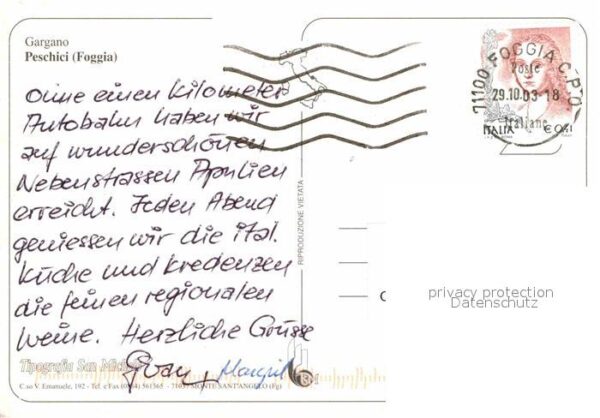 Gargano
Peschici (Foggia)
Ohne einen Kilometer
Autobahn haben wir
auf wunderschönen
Nebenstrassen Apulien
erreicht. Jeden Abend
geniessen wir die ital.
Küche und kredenzen
die feinen regionalen
Weine. Herzliche Grüsse
+ Margrit
Tipografia San Michele
C.so V. Emanuele, 192 - Tel. e Fax (0884) 561565 - 71037 MONTE SANT'ANGELO (Fg)
RIPRODUZIONE VIETATA
71100 FOGGIA C.P.O.
Poste
29.10.03-18
Italiane
ITALIA € 0,41
privacy protection
Datenschutz